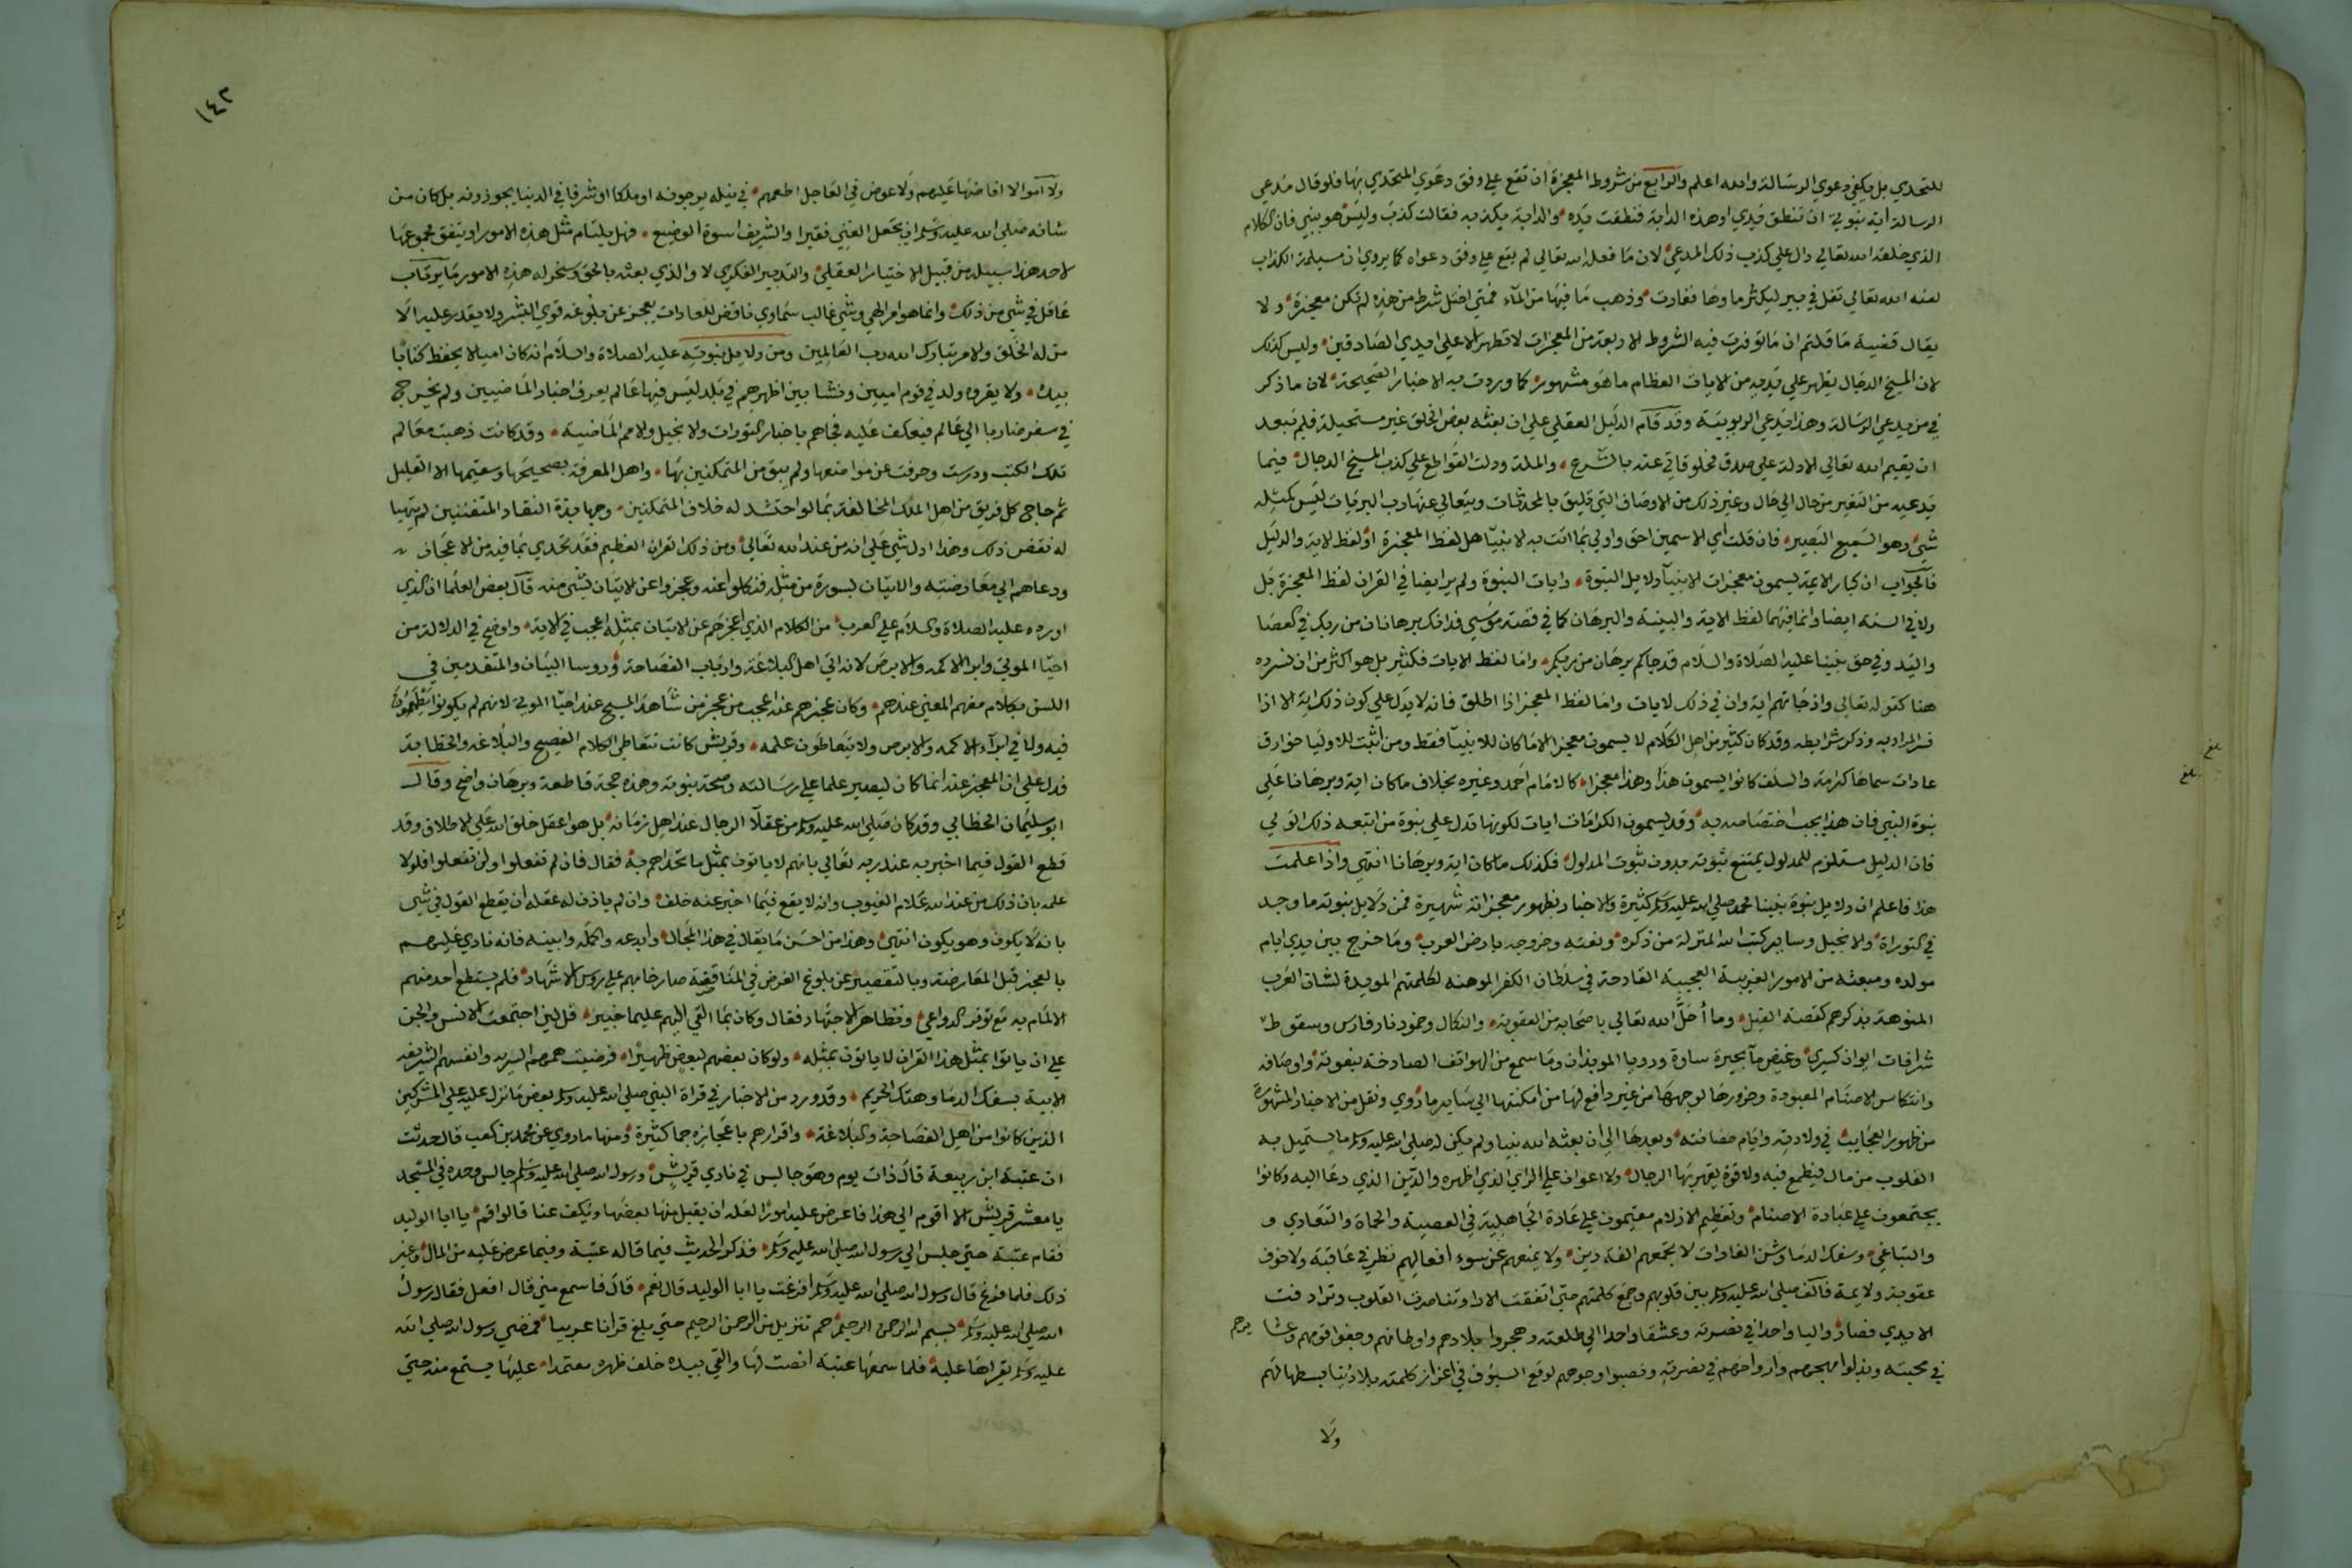 للتحدي بل يكفي دعوي الرسالة والله اعلم والرابع من شروط المعجزة ان تقع علي وفق دعوي المتحدي بها فلو قال مدعي
الرسالة اية نبوتي ان تنطق يدي او هذه الدابة فنطقت يده والدابة بكذبه فقالت كذب وليس هو بنبي فان الكلام
الذي خلقه الله تعالي دال علي كذب ذلك المدعي لان ما فعله الله تعالي لم يقع علي وفق دعواه كما يروي ان مسيلمة الكذاب
لعنه الله تعالي تفل في بير ليكثر ماوها فغارت وذهب ما فيها من المآء فمتي اختل شرط من هذه لم تكن معجزة ولا
يقال قضية ما قلتم ان ما توفرت فيه الشروط الاربعة من المعجزات لا تظهر الا علي ايدي الصادقين وليس كذلك
لان المسيخ الدجال يظهر علي يديه من الايات العظام ما هو مشهور كما وردت به الاخبار الصحيحة لان ما ذكر
في من يدعي الرسالة وهذا يدعي الربوبية وقد قام الدليل العقلي علي ان بعثه بعض الخلق غير مستحيلة فلم يبعد
ان يقيم الله تعالي الادلة علي صدق مخلوق اتي عنه بالشرع والملة ودلت القواطع علي كذب المسيخ الدجال فيما
يدعيه من التغير من حال الي حال وغير ذلك من الاوصاف التي تليق بالمحدثات ويتعالي عنها رب البريات ليس كمثله
شي وهو السميع البصير فان قلت اي الاسمين احق واولي بما اتت به الانبيآ هل لفظ المعجزة او لفظ الاية والدليل
فالجواب ان كبار الايمة يسمون معجزات الانبيآ دلايل النبوة وايات النبوة ولم يرد ايضا في القران لفظ المعجزة بل
ولا في السنة ايضا وانما فيهما لفظ الاية والبينة والبرهان كما في قصة موسي فذانك برهانان من ربك في العصا
واليد وفي حق نبينا عليه الصلاة والسلام قد جاكم برهان من ربكم واما لفظ الايات فكثير بل هو اكثر من ان نسرده
هنا كقوله تعالي واذ جاتهم اية وان في ذلك لايات واما لفظ المعجز اذا اطلق فانه لا يدل علي كون ذلك اية الا اذا
فسر المراد به وذكر شرايطه وقد كان كثير من اهل الكلام لا يسمون معجزا الا ما كان للانبيآ فقط ومن اثبت للاوليا خوارق
عادات سماها كرامة والسلف كانوا يسمون هذا وهذا معجزا كالامام احمد وغيره بخلاف ما كان اية وبرهانا علي
نبوة النبي فان هذا يجب اختصاصه به وقد يسمون الكرامات ايات لكونها تدل علي نبوة من اتبعه ذلك الولي
فان الدليل مستلزم للمدلول يمتنع ثبوته بدون ثبوت المدلول فكذلك ما كان اية وبرهانا انتهي واذا علمت
هذا فاعلم ان دلايل نبوة نبينا محمد صلي الله عليه وسلم كثيرة والاخبار بظهور معجزاته شهيرة فمن دلايل نبوته ما وجد
في التوراة والانجيل وساير كتب الله المنزلة من ذكره ونعته وخروجه بارض العرب وما خرج بين يدي ايام
مولده ومبعثه من الامور الغريبة العجيبة القادحة في سلطان الكفر الموهنه لكلمتهم المويدة لشان العرب
المنوهة بذكرهم كقصة الفيل وما أحَلَّ الله تعالي باصحابه من العقوبة والنكال وخمود نار فارس وسقوط
شرافات ايوان كسري وغيض مآ بحيرة ساوة ورويا الموبذان وما سمع من الهواتف الصارخة بنعوته واوصافه
وانتكاس الاصنام المعبودة وخرورها لوجهها من غير دافع لها من امكنتها الي ساير ما روي ونقل من الاخبار المشهورة
من ظهور العجايب في ولادته وايام حضانته وبعدها الي ان بعثه الله نبيا ولم يكن له صلي الله عليه وسلم ما يستميل به
القلوب من مال فيطمع فيه ولا قوة يقهر بها الرجال ولا اعوان علي الراي الذي اظهره والدين الذي دعا اليه وكانوا
يجتمعون علي عبادة الاصنام وتعظيم الازلام مقيمون علي عادة الجاهلية في العصبية والحماة والتعادي و
والتباغي وسفك الدما وشن الغارات لا تجمعهم الفة دين ولا يمنعهم عن سوء افعالهم نظر في عاقبة ولا خوف
عقوبة ولا يمة فالف صلي الله عليه وسلم بين قلوبهم وجمع كلمتهم حتي اتفقت الارا وتناصرت القلوب وترادفت
الايدي فصاروا البا واحدا في نصرته وعشقا واحدا الي طلعته وهجروا بلادهم واوطانهم وجفوا قومهم وعشايرهم
في محبته وبذلوا مهجهم وارواحهم في نصرته ونصبوا وجوههم لوقع السيوف في اعزاز كلمته بلا دنيا بسطها لهم
ولا
بلغ
بلغ
١٤٣
ولا اموالا افاضها عليهم ولا عوض في العاجل اطعمهم في نيله يرجونه او ملكا او شرفا في الدنيا يحوزونه بل كان من
شانه صلي الله عليه وسلم ان يجعل الغني فقيرا والشريف اسوة الوضيع فهل يلتام مثل هذه الامور او يتفق مجموعها
لاحد هذا سبيله من قبيل الاختيار العقلي والتدبير الفكري لا والذي بعثه بالحق وسخر له هذه الامور ما يرتاب
عاقل في شي من ذلك وانما هو امر الهي وشي غالب سماوي ناقض للعادات يعجز عن بلوغه قوي البشر ولا يقدر عليه الا
من له الخلق والامر تبارك الله رب العالمين ومن دلايل نبوته عليه الصلاة والسلام انه كان اميا لا يحفظ كتابا
بيده ولا يقروه ولد في قوم اميين ونشا بين اظهرهم في بلد ليس فيها عالم يعرف اخبار الماضيين ولم يخرج
في سفر ضاربا الي عالم فيعكف عليه فجاهم باخبار التورات والانجيل والامم الماضية وقد كانت ذهبت معالم
تلك الكتب ودرست وحرفت عن مواضعها ولم يبق من المتمكنين بها واهل المعرفة بصحيحها وسقيمها الا القليل
ثم حاجج كل فريق من اهل الملك المخالفة بما لو احتشد له خلاف المتمكنين وجهابذة النقاد المتفننين لم يتهيا
له نقض ذلك وهذا ادل شي علي انه من عند الله تعالي ومن ذلك القران العظيم فقد تحدي بما فيه من الاعجاز
ودعاهم الي معارضته والاتيان بسورة من مثله فنكلوا عنه وعجزوا عن الاتيان بشي منه قال بعض العلما ان الذي
اورده عليه الصلاة والسلام علي العرب من الكلام الذي اعجزهم عن الاتيان بمثله اعجب في الاية واوضح في الدلالة من
احيا الموتي وابرا الاكمه والابرص لانه اتي اهل البلاغة وارباب الفصاحة وروسا البيان والمتقدمين في
اللسن بكلام مفهم المعني عندهم وكان عجزهم عنه اعجب من عجز من شاهد المسيح عند احيا الموتي لانهم لم يكونوا يطمعون
فيه ولا في ابرآء الاكمه والابرص ولا يتعاطون علمه وقريش كانت تتعاطي الكلام الفصيح والبلاغه والخطابة
فدل علي ان المعجز عنه انما كان ليصير علما علي رسالته وصحة نبوته وهذه حجة قاطعة وبرهان واضح وقال
ابو سليمان الخطابي وقد كان صلي الله عليه وسلم من عقلآ الرجال عند اهل زمانه بل هو اعقل خلق الله علي الاطلاق وقد
قطع القول فيما اخبر به عند ربه تعالي بانهم لا ياتون بمثل ما تحداهم به فقال فان لم تفعلوا ولن تفعلوا فلولا
علمه بان ذلك من عند الله علام الغيوب وانه لا يقع فيما اخبر عنه خلف وان لم ياذن له عقله ان يقطع القول في شي
بانه لا يكون وهو يكون انتهي وهذا من احسن ما يقال في هذا المجال وابدعه واكمله وابينه فانه نادي عليهم
بالعجز قبل المعارضة وبالتقصير عن بلوغ الغرض في المناقضة صارخا بهم علي روس الاشهاد فلم يستطع احد منهم
الالمام به مع توفر الدواعي وتظاهر الاجتهاد فقال وكان بما القي اليهم عليما خبيرا قل لين اجتمعت الانس والجن
علي ان ياتوا بمثل هذا القران لا ياتون بمثله ولو كان بعضهم لبعض ظهيرا فرضيت هممهم السريه وانفسهم الشريفه
الابية بسفك الدما وهتك الحريم وقد ورد من الاخبار في قراة النبي صلي الله عليه وسلم بعض ما نزل عليه علي المشركين
الذين كانوا من اهل الفصاحة والبلاغة واقرارهم باعجازه جما كثيرة ومنها ما روي عن محمد بن كعب قال حدثت
ان عتبة ابن ربيعة قال ذات يوم وهو جالس في نادي قريش ورسول الله صلي الله عليه وسلم جالس وحده في المسجد
يا معشر قريش الا اقوم الي هذا فاعرض عليه امورا لعله ان يقبل منها بعضها ويكف عنا قالوا قم يا ابا الوليد
فقام عتبة حتي جلس الي رسول الله صلي الله عليه وسلم فذكر الحديث فيما قاله عتبة وفيما عرض عليه من المال وغير
ذلك فلما فرغ قال رسول الله صلي الله عليه وسلم افرغت يا ابا الوليد قال نعم قال فاسمع مني قال افعل فقال رسول
الله صلي الله عليه وسلم بسم الله الرحمن الرحيم حم تنزيل من الرحمن الرحيم حتي بلغ قرانا عربيا فمضي رسول الله صلي الله
عليه وسلم يقراها عليه فلما سمعها عتبة انصت لها والقي بيده خلف ظهره معتمدا عليها يستمع منه حتي